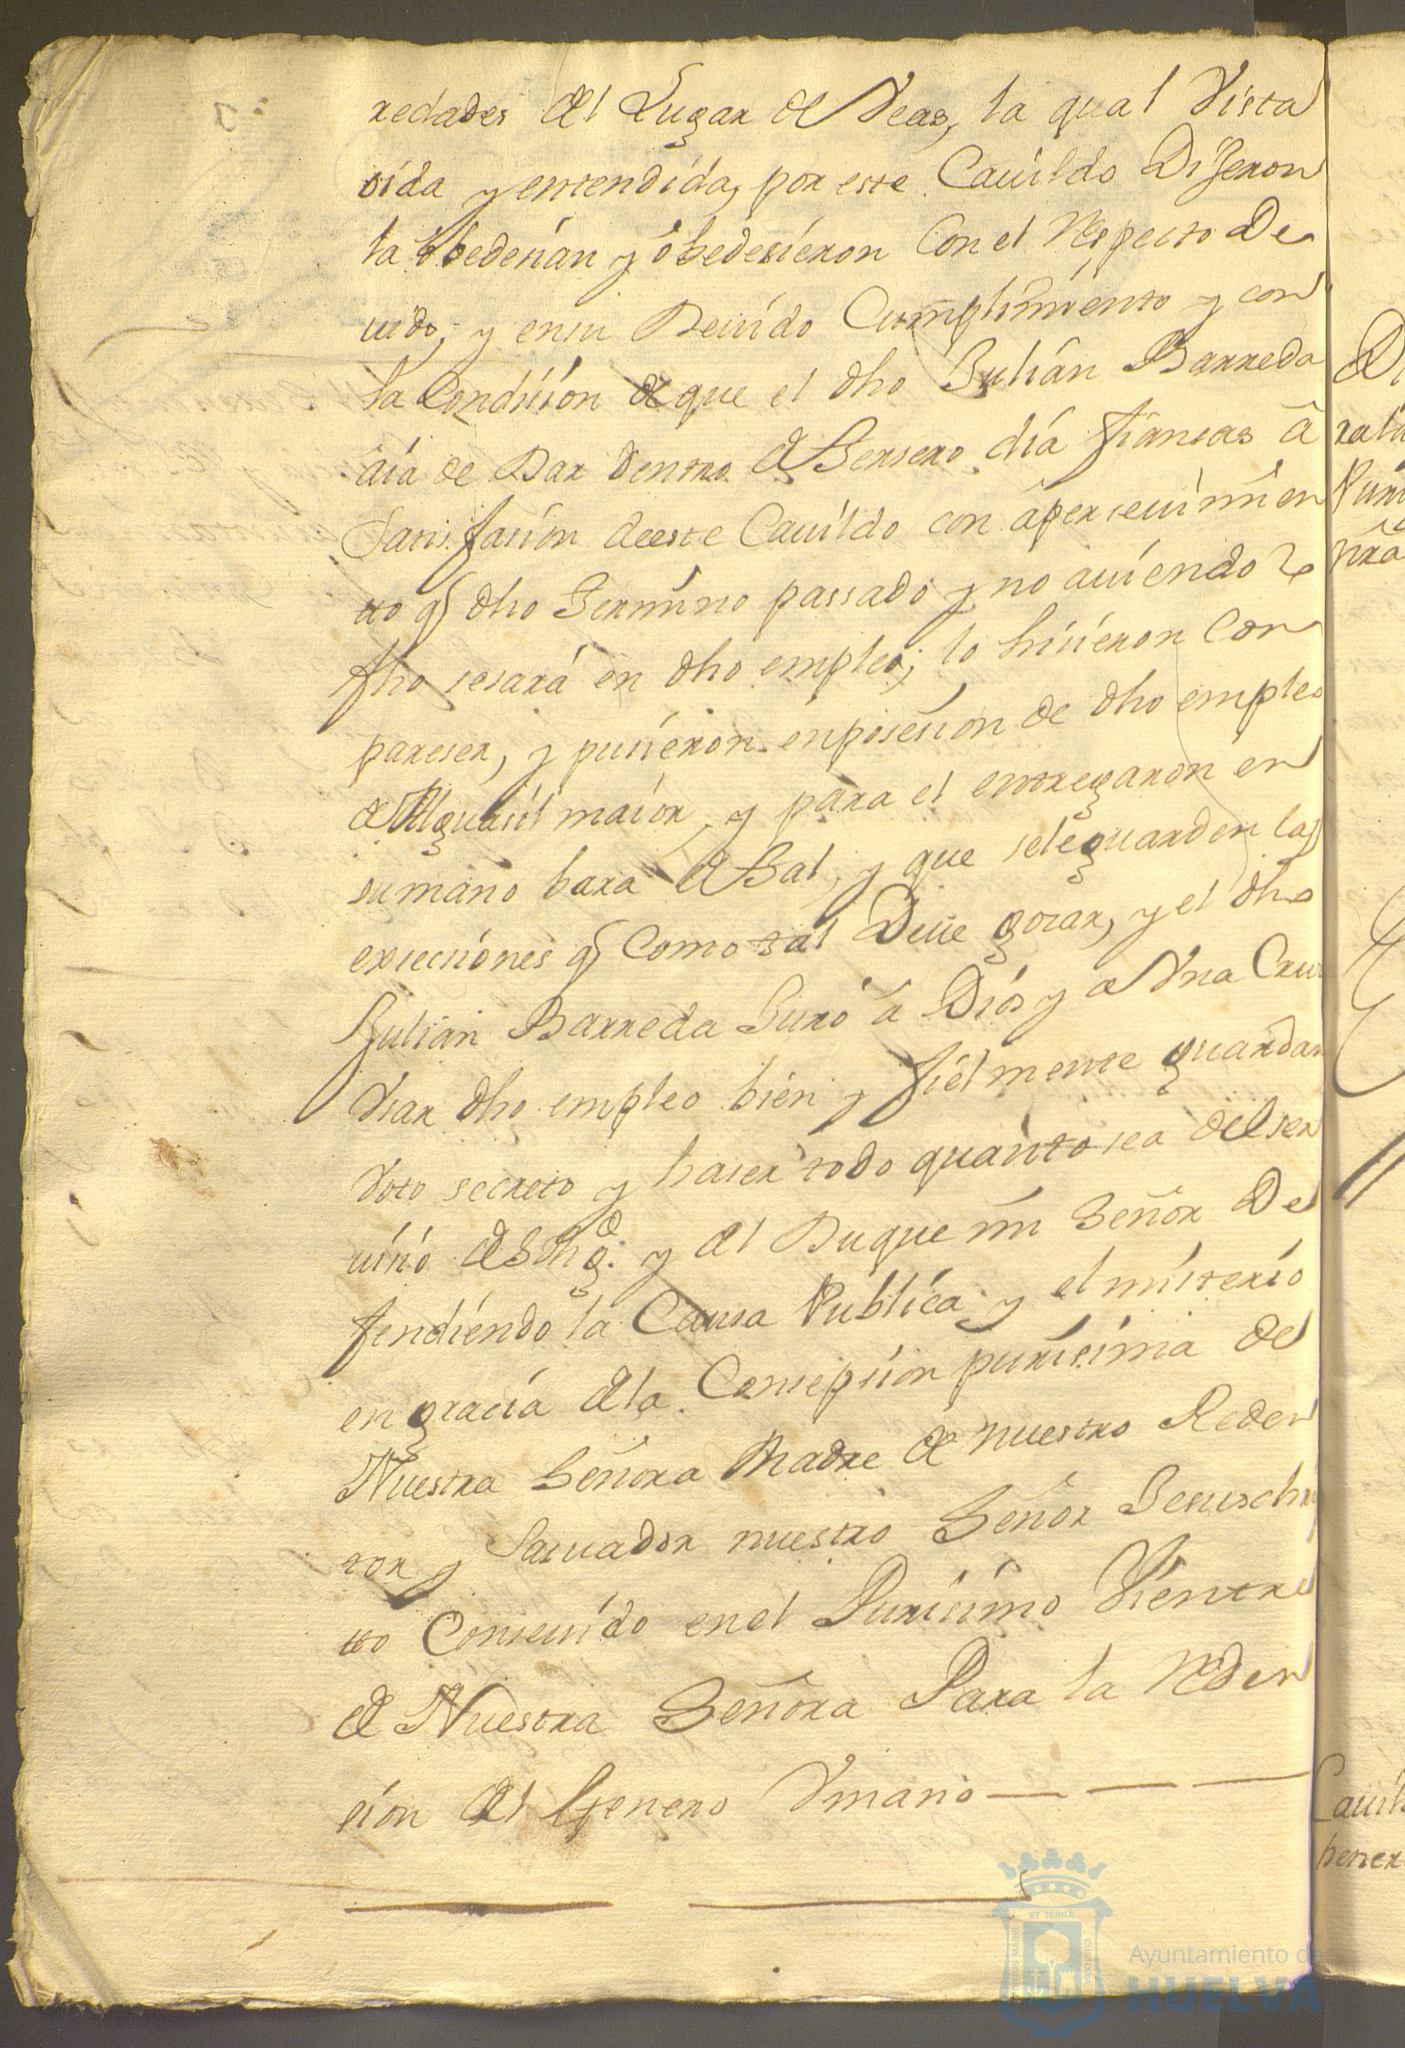 redades del Lugar de Veas, la qual Vista
oida y entendida, por este Cauildo Dijeron
la obedecian y obedesieron Con el Respecto De
uido, y en su Deuido Cumplimiento y con
la Condicion de que el dho Julián Barreda
aia de Dar dentro de terzero dia fianzas â
Satisfacion de este Cauildo con âpersevimien
tto q dho Termino passado y no auiendo lo
fho sesará en dho empleo; lo hisieron Com
pareser, y pusieron en posesion de dho empleo
de Alguasil maior, y para el entregaron en
su mano bara de tal, y que sele guarden las
exsecciones q como tal Deue gozar, y el dho
Julian Barreda Juró â Dios y a Vna Cruz
Vsar dho empleo bien y fielmente guardar
Voto secreto y haser todo quanto sea del ser
uicio de S Mgd. y del Duque mi Señor De
fendiendo la Causa Publica y el misterio
en gracia de la Consepsion purisima de
Nuestra Señora Madre de nuestro Reden
tor y Saluador nuestro Señor Jesuschri
tto Conseuido en el Purisimo Vientre
de Nuestra Señora Para la Reden
cion del Genero Vmano
Ayuntamiento de
HUELVA